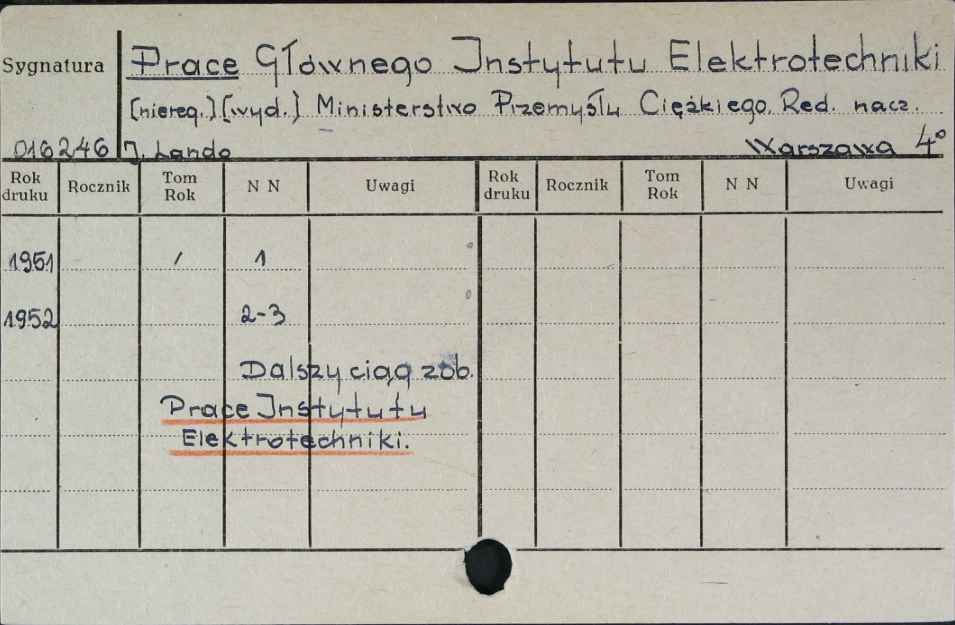 Sygnatura Prace Głównego Instytutu Elektrotechniki
[niereg.] [wyd.] Ministerstwo Przemysłu Ciężkiego. Red. nacz.
016246 J. Lando Warszawa 4°
Rok druku Rocznik Tom Rok N N Uwagi Rok druku Rocznik Tom Rok N N Uwagi
1951 / 1
1952 2-3
Dalszy ciąg zob.
Prace Instytutu
Elektrotechniki.